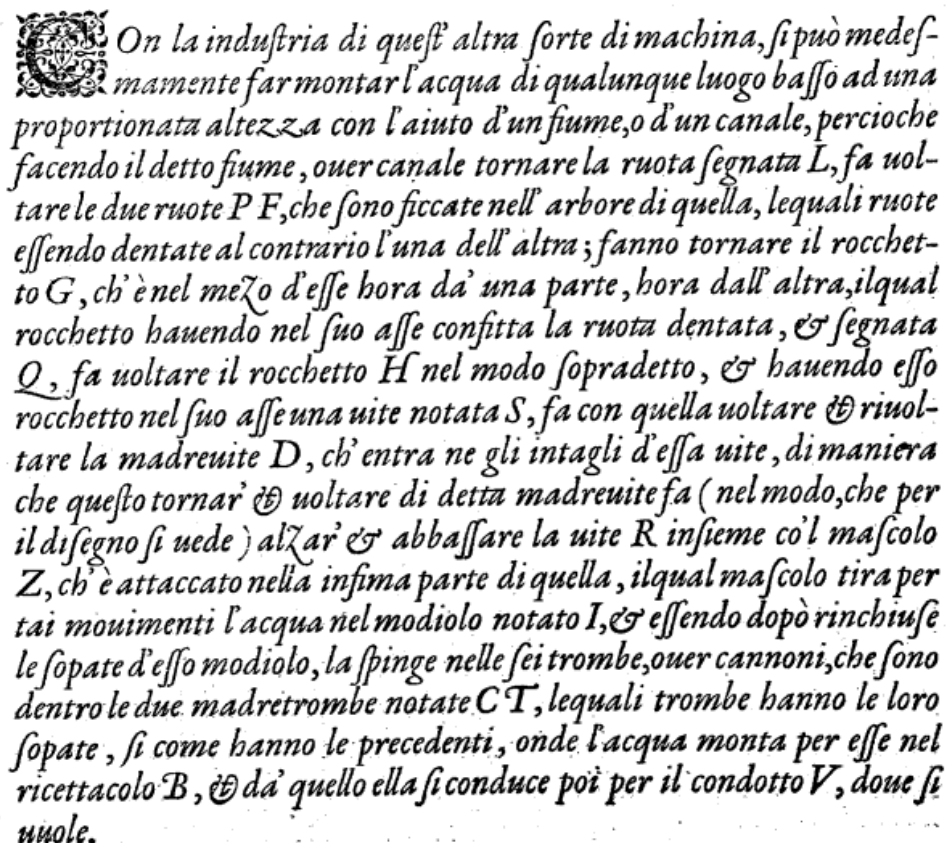 COn la induſtria di queſt' altra ſorte di machina, ſi può medeſ-
mamente far montar l'acqua di qualunque luogo baſſo ad una
proportionata altezza con l'aiuto d'un fiume, o d'un canale, percioche
facendo il detto fiume, ouer canale tornare la ruota ſegnata L, fa uol-
tare le due ruote P F, che ſono ficcate nell' arbore di quella, lequali ruote
eſſendo dentate al contrario l'una dell' altra; fanno tornare il rocchet-
to G, ch' è nel mezo d'eſſe hora da' una parte, hora dall' altra, ilqual
rocchetto hauendo nel ſuo aſſe confitta la ruota dentata, & ſegnata
Q, fa uoltare il rocchetto H nel modo ſopradetto, & hauendo eſſo
rocchetto nel ſuo aſſe una uite notata S, fa con quella uoltare & riuol-
tare la madreuite D, ch' entra ne gli intagli d'eſſa uite, di maniera
che queſto tornar' & uoltare di detta madreuite fa ( nel modo, che per
il diſegno ſi uede ) alzar' & abbaſſare la uite R inſieme co'l maſcolo
Z, ch' è attaccato nella infima parte di quella, ilqual maſcolo tira per
tai mouimenti l'acqua nel modiolo notato I, & eſſendo dopò rinchiuſe
le ſopate d'eſſo modiolo, la ſpinge nelle ſei trombe, ouer cannoni, che ſono
dentro le due madretrombe notate C T, lequali trombe hanno le loro
ſopate, ſi come hanno le precedenti, onde l'acqua monta per eſſe nel
ricettacolo B, & da' quello ella ſi conduce poi per il condotto V, doue ſi
uuole.